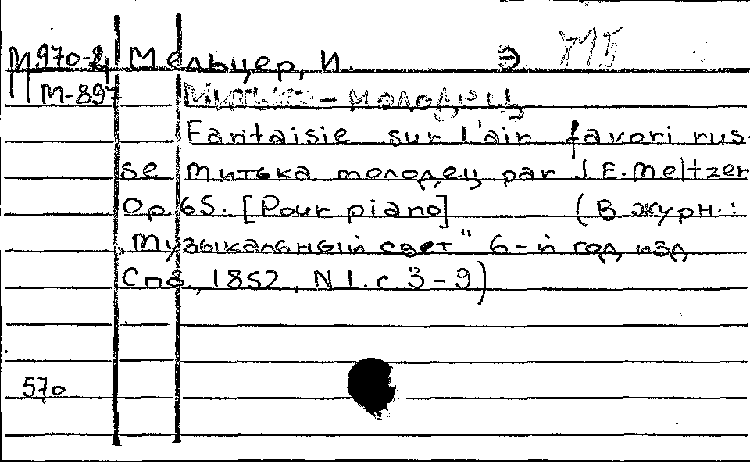 М 970-2 Мельцер, И. Э
М-897 Митька-молодец
Fantaisie sur l'air favori rus-
se Митька молодец par J.E. Meltzer
Op. 65. [Pour piano] (В журн.:
„Музыкальный свет" 6-й год изд
Спб., 1852, N 1. с 3-9)
570